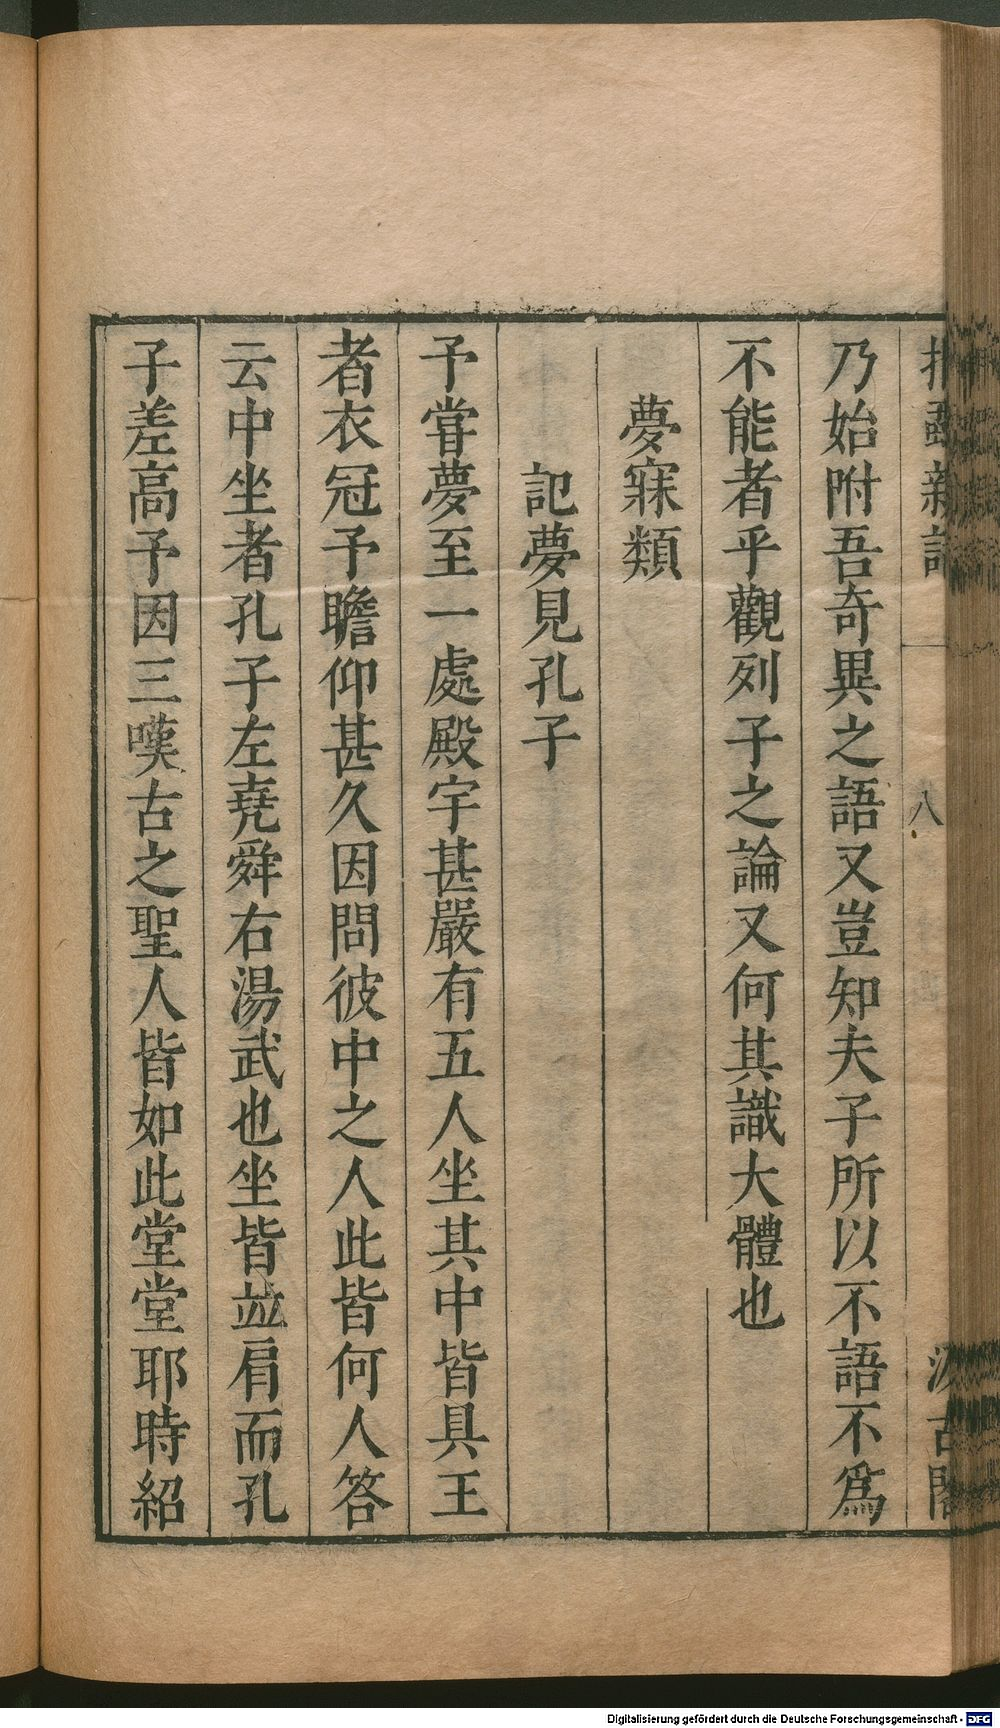 捫蝨新話
八
汲古閣
乃始附吾奇異之語又豈知夫子所以不語不爲
不能者乎觀列子之論又何其識大體也
夢寐類
記夢見孔子
予甞夢至一處殿宇甚嚴有五人坐其中皆具王
者衣冠予瞻仰甚久因問彼中之人此皆何人答
云中坐者孔子左堯舜右湯武也坐皆並肩而孔
子差高予因三嘆古之聖人皆如此堂堂耶時紹
Digitalisierung gefördert durch die Deutsche Forschungsgemeinschaft - DFG